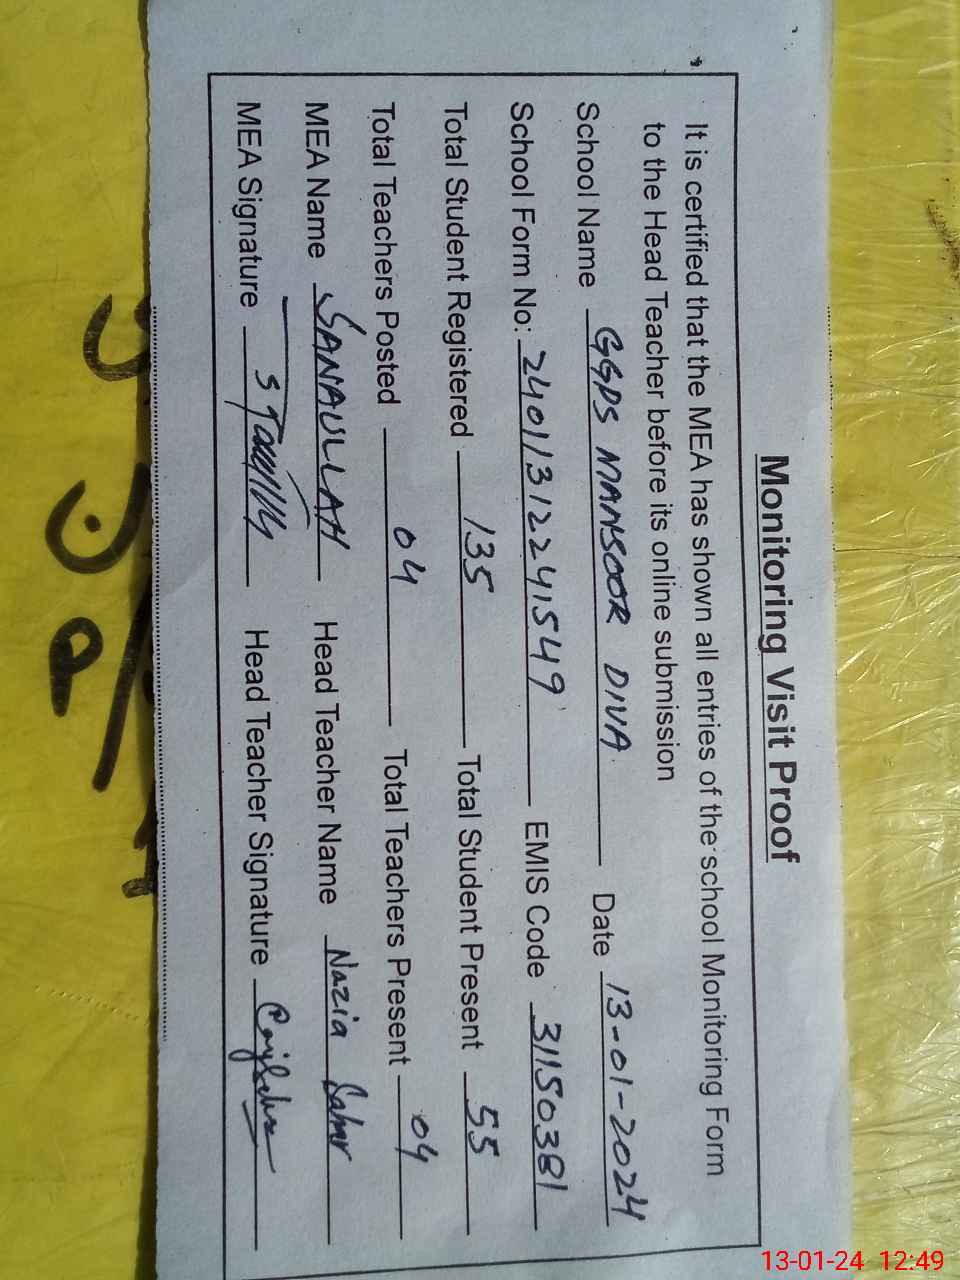 Monitoring Visit Proof
It is certified that the MEA has shown all entries of the school Monitoring Form
to the Head Teacher before its online submission
School Name GGPS MANSOOR DIVA Date 13-01-2024
School Form No: 24011312241549 EMIS Code 31150381
Total Student Registered 135 Total Student Present 55
Total Teachers Posted 04 Total Teachers Present 04
MEA Name SANAULLAH Head Teacher Name Nazia Sahar
MEA Signature Head Teacher Signature
13-01-24 12:49